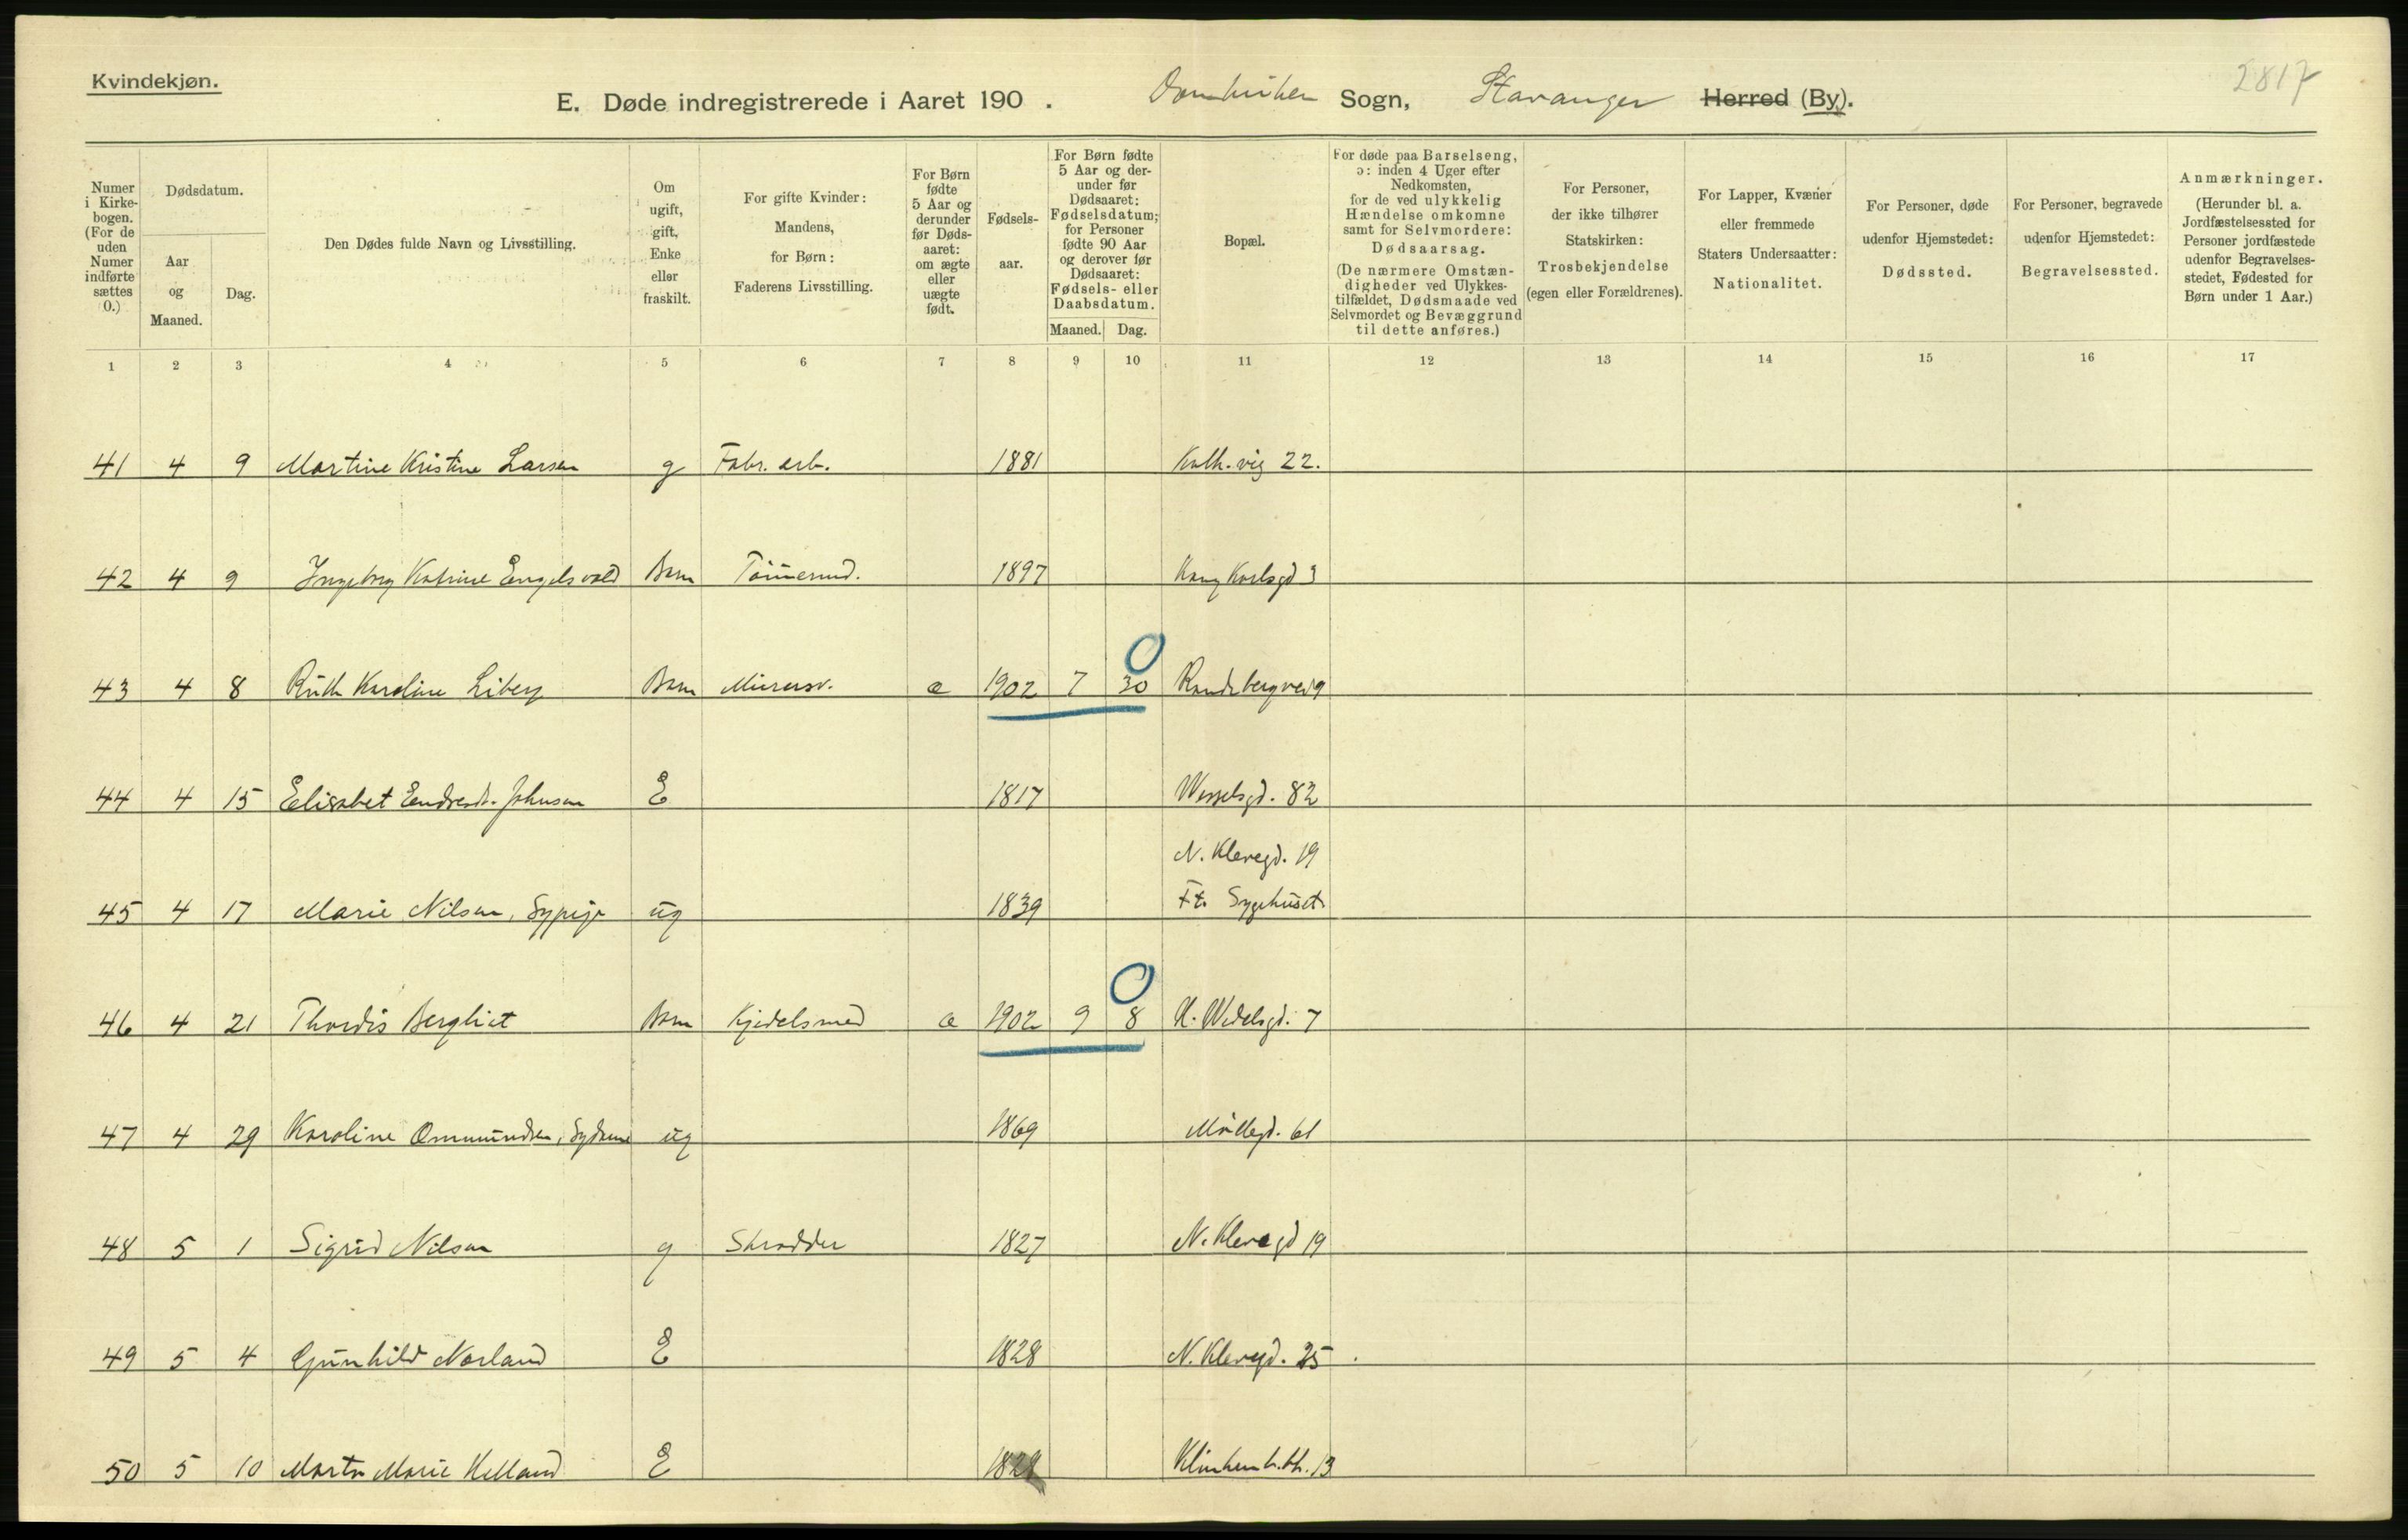 Kvindekjøn.
2817
E. Døde indregistrerede i Aaret 190 . Domkirken Sogn, Stavanger Herred (By).
Numer i Kirkebogen. (For de uden Numer indførte sættes 0.)
Dødsdatum.
Aar og Maaned.
Dag.
Den Dødes fulde Navn og Livsstilling.
Om ugift, gift, Enke eller fraskilt.
For gifte Kvinder: Mandens, for Børn: Faderens Livsstilling.
For Børn fødte 5 Aar og derunder før Dødsaaret: om ægte eller uægte født.
Fødselsaar.
For Børn fødte 5 Aar og derunder før Dødsaaret: Fødselsdatum; for Personer fødte 90 Aar og derover før Dødsaaret: Fødsels- eller Daabsdatum.
Maaned. Dag.
Bopæl.
For døde paa Barselseng, ɔ: inden 4 Uger efter Nedkomsten, for de ved ulykkelig Hændelse omkomne samt for Selvmordere: Dødsaarsag. (De nærmere Omstændigheder ved Ulykkestilfældet, Dødsmaade ved Selvmordet og Bevæggrund til dette anføres.)
For Personer, der ikke tilhører Statskirken: Trosbekjendelse (egen eller Forældrenes).
For Lapper, Kvæner eller fremmede Staters Undersaatter: Nationalitet.
For Personer, døde udenfor Hjemstedet: Dødssted.
For Personer, begravede udenfor Hjemstedet: Begravelsessted.
Anmærkninger. (Herunder bl. a. Jordfæstelsessted for Personer jordfæstede udenfor Begravelsesstedet, Fødested for Børn under 1 Aar.)
1 2 3 4 5 6 7 8 9 10 11 12 13 14 15 16 17
41 4 9 Martine Kristine Larsen g Fabr. arb. 1881 Kalh. vig 22.
42 4 9 Ingeborg Katrine Engelsvold Barn Tømmermd. 1897 Kong Karlsgd 3
43 4 8 Ruth Karoline Liberg Barn Murersv. æ 1902 7 30 Randebergvei 9
44 4 15 Elisabet Endresdt. Johnsen E 1817 Wesselsgd. 82
N. Klevegd. 19
45 4 17 Marie Nilsen, Sypige ug 1839 Ft. Sygehuset
46 4 21 Thordis Bergliot Barn Kjedelsmed æ 1902 9 8 N. Wedelsgd. 7
47 4 29 Karoline Ommundsen, Sydame ug 1869 Møllegd. 61
48 5 1 Sigrid Nilsen g Skrædder 1827 N. Klevegd 19
49 5 4 Gunhild Norland E 1828 N. Klevegd. 25
50 5 10 Marta Marie Helland E Klinkenb.bk. 13